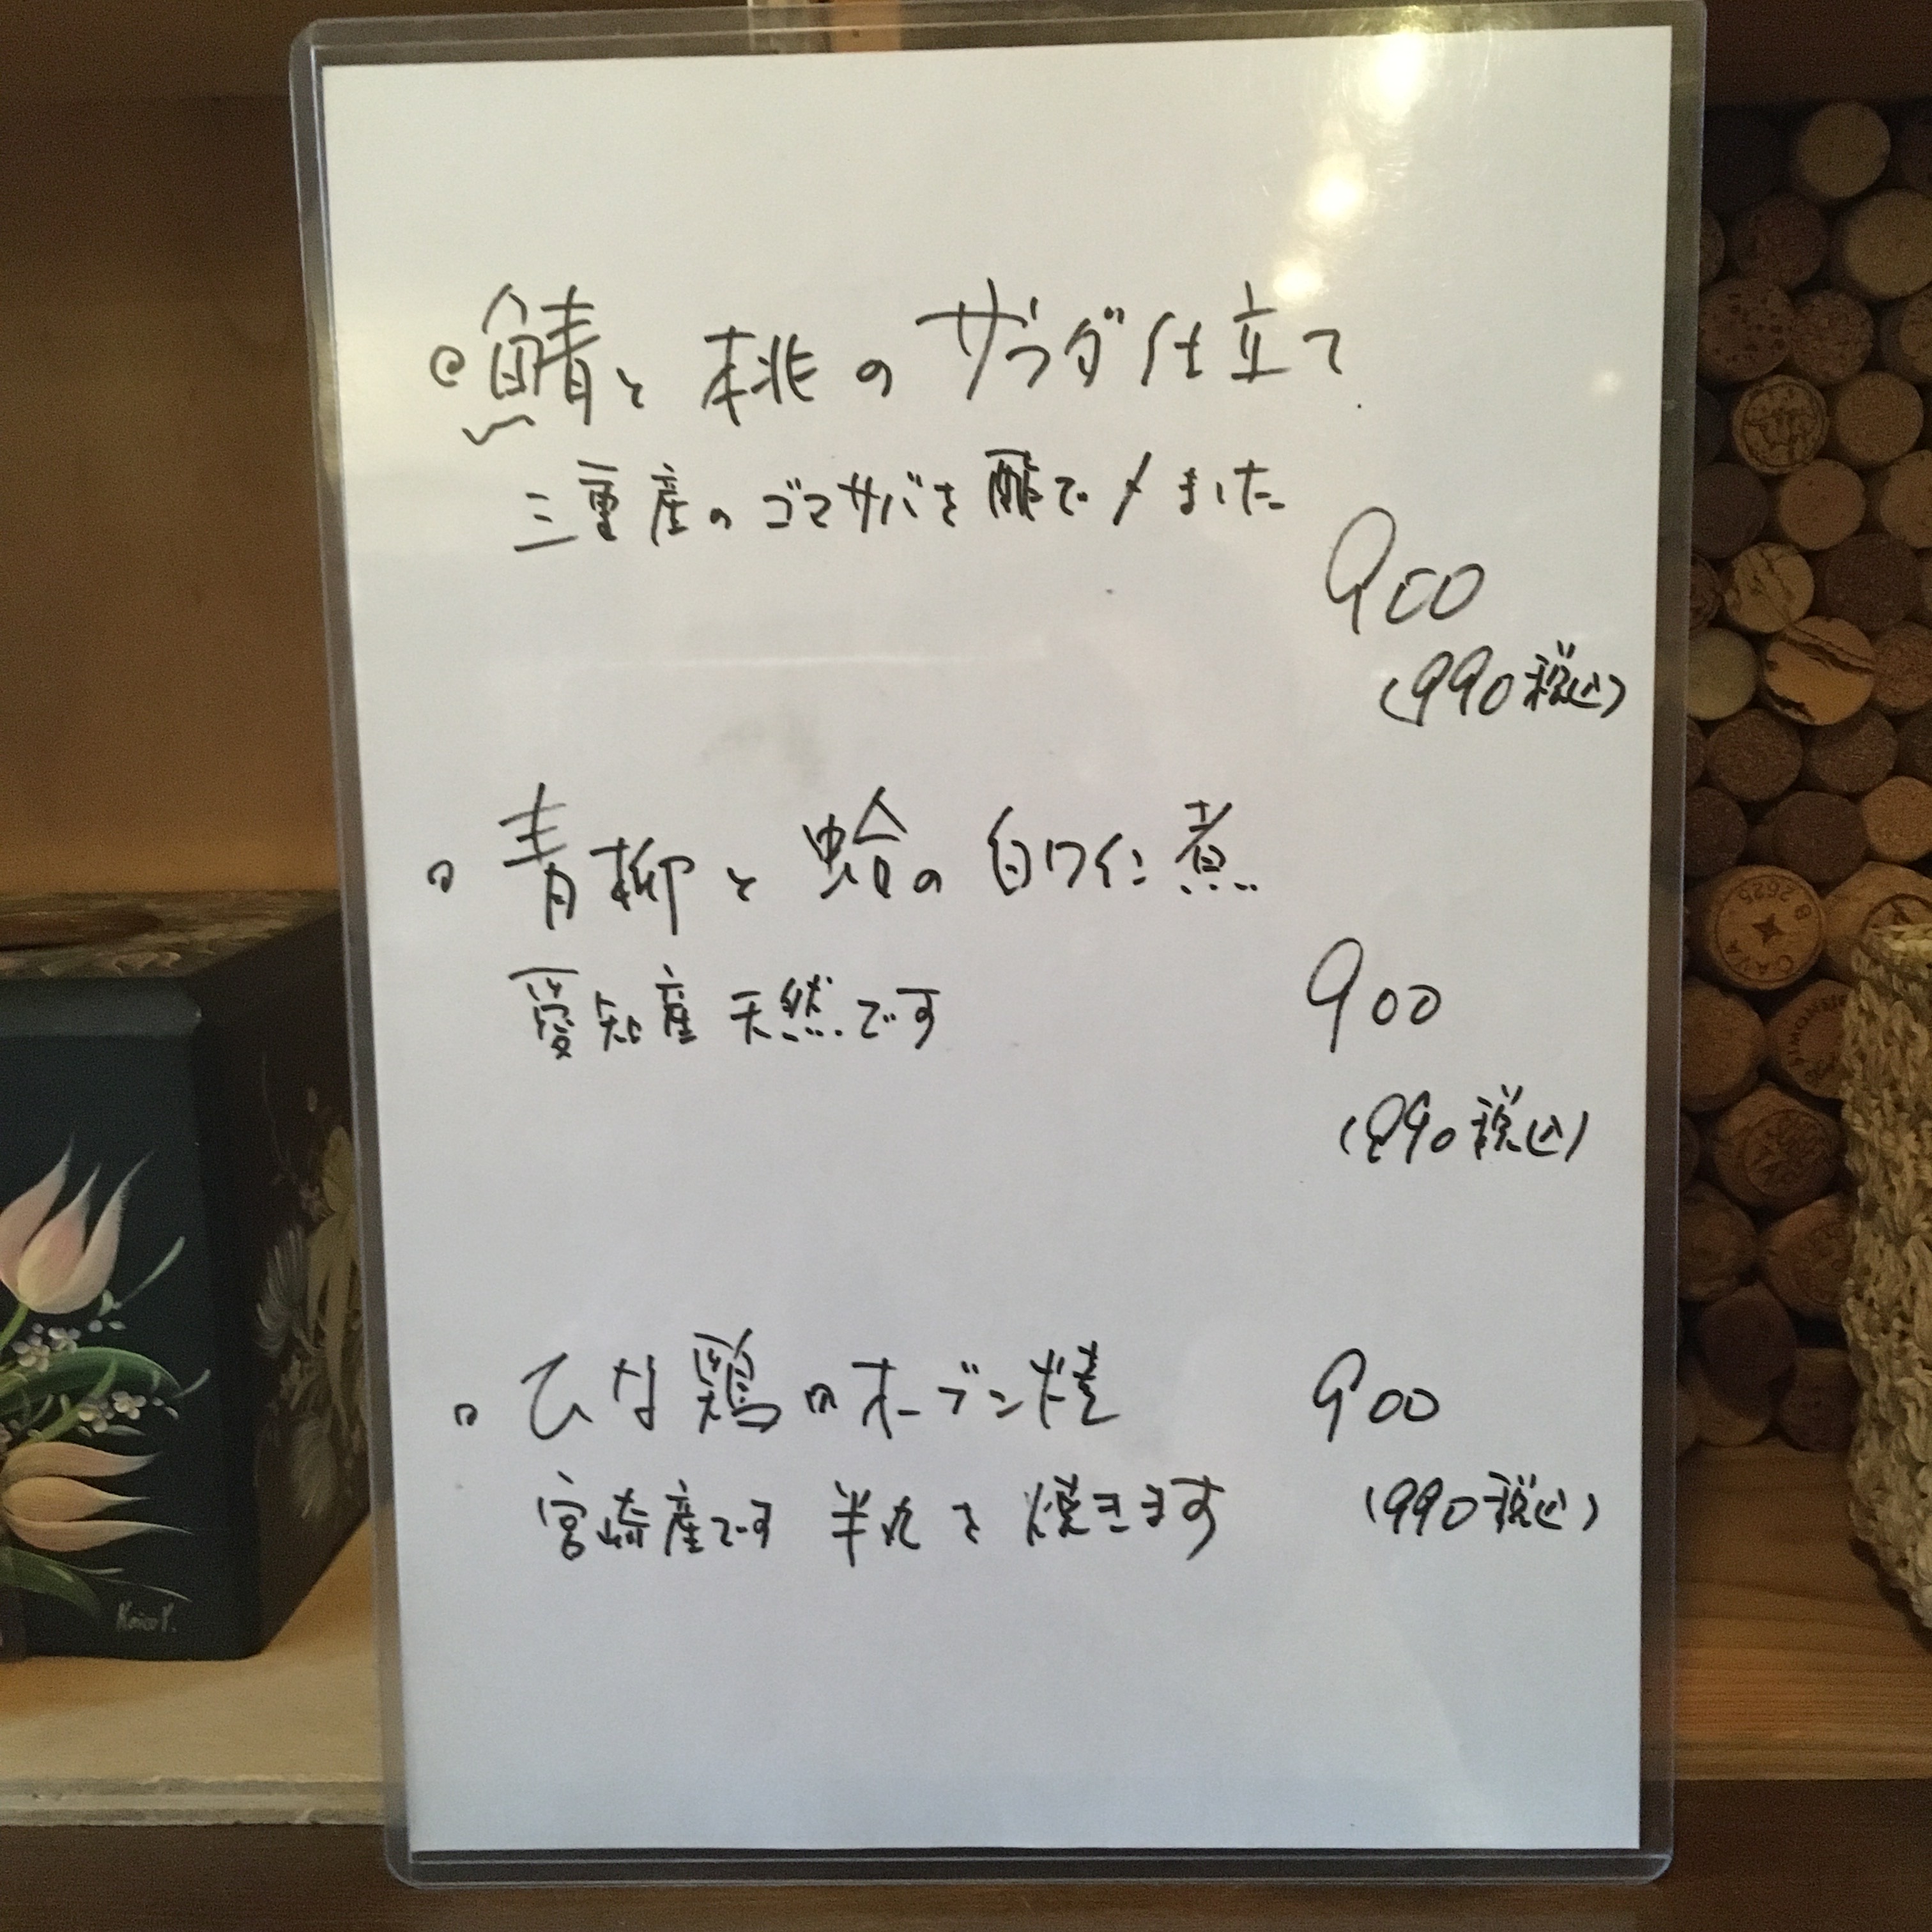 鯖と桃のサラダ仕立て
三重産のゴマサバを酢で〆ました
900
(990税込)
青柳と蛤の白ワイン煮
愛知産天然です
900
(990税込)
ひな鶏のオーブン焼
900
宮崎産です 半丸を焼きます
(990税込)
Keico Y.
CAVA